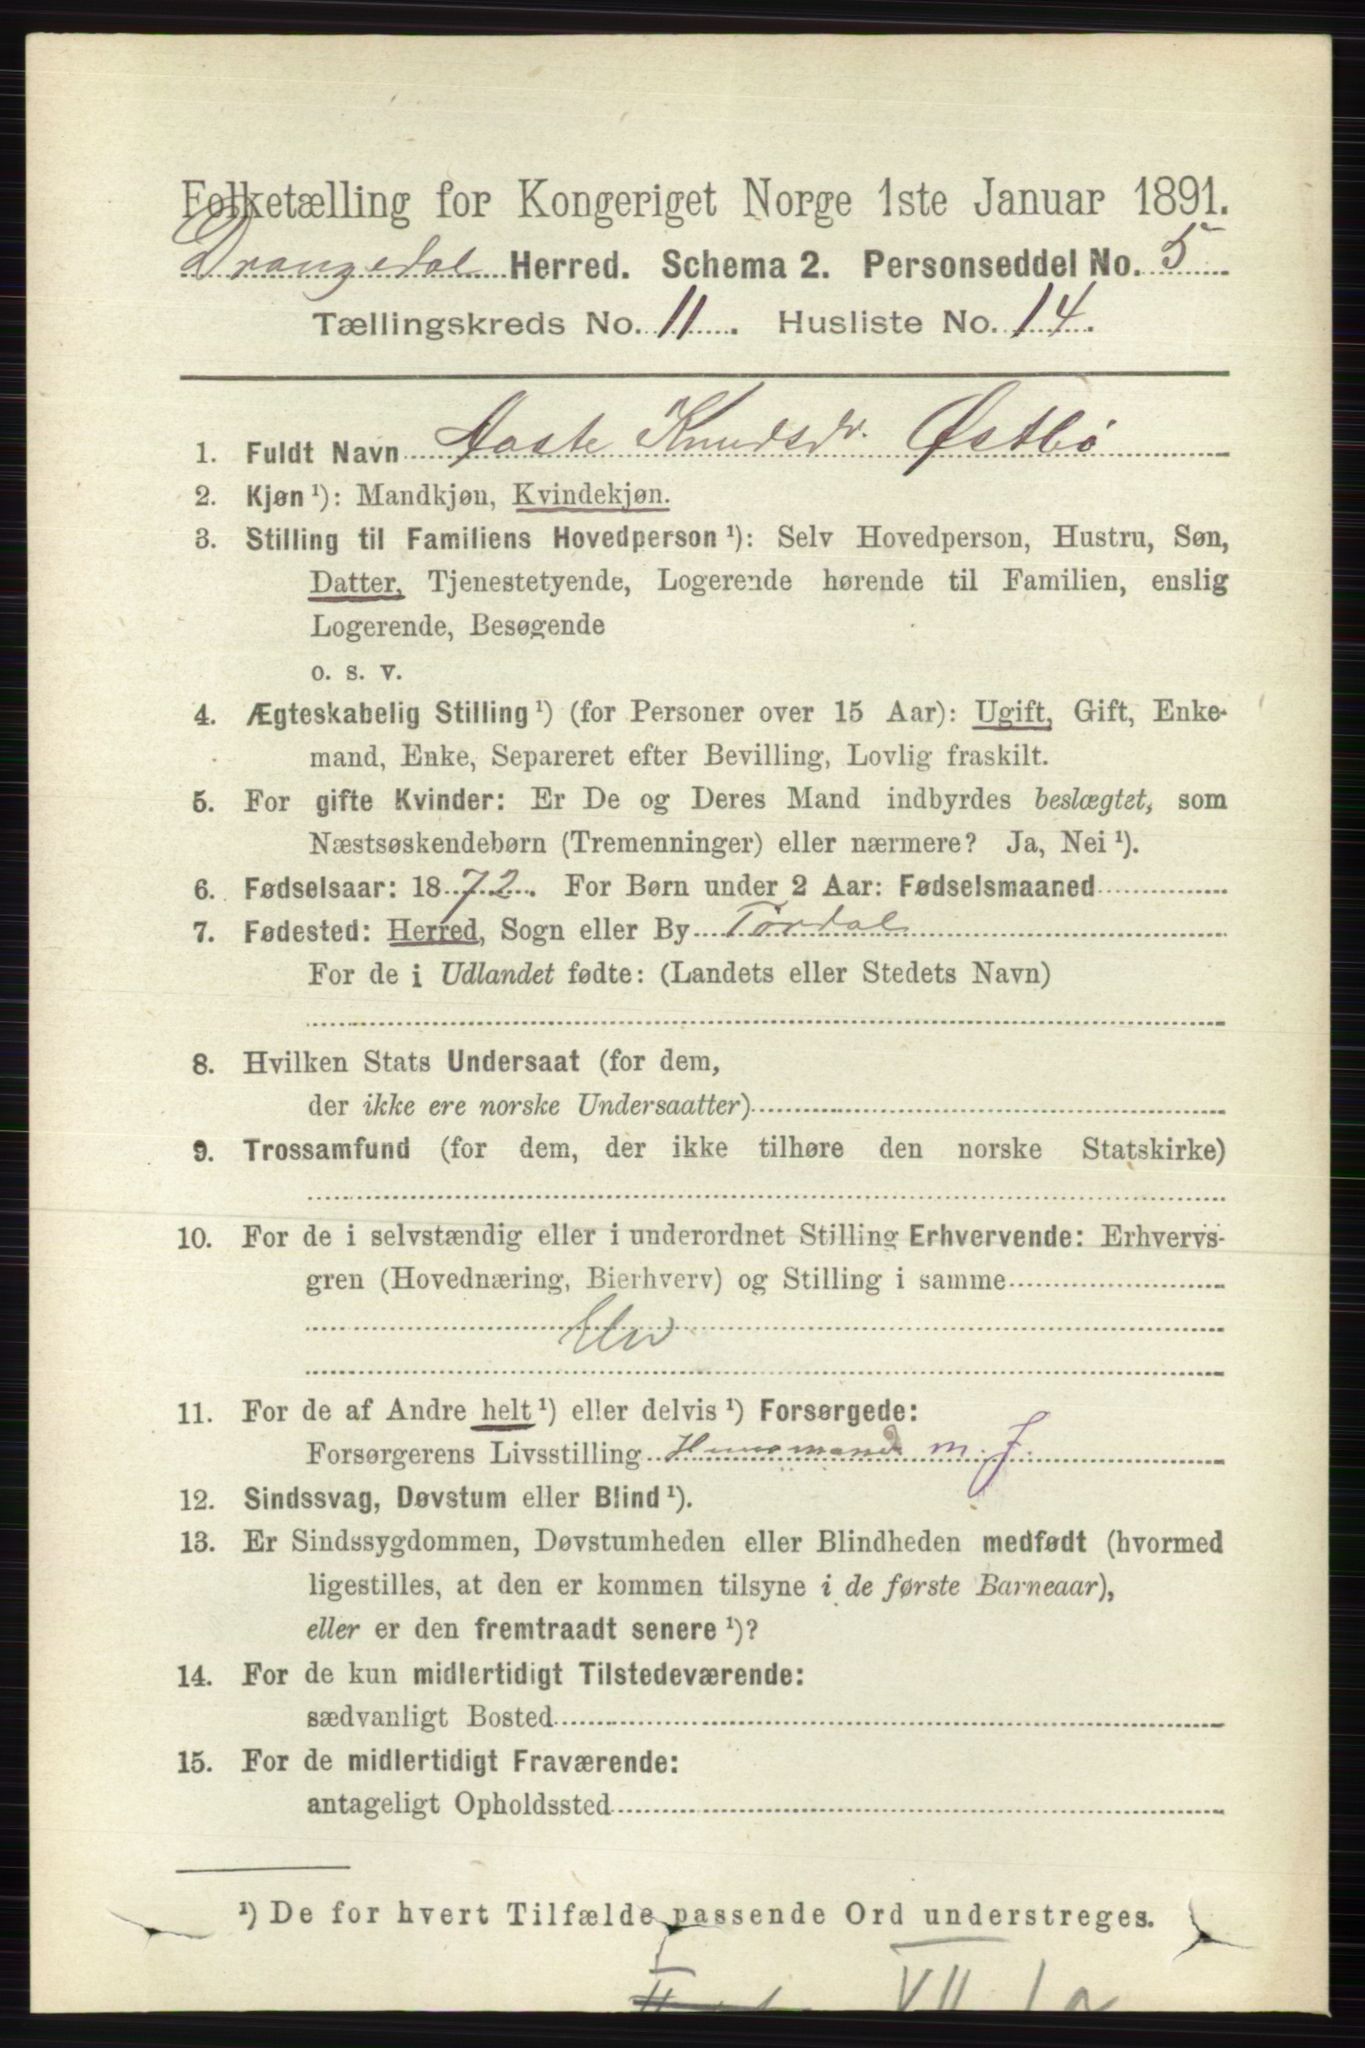 Folketælling for Kongeriget Norge 1ste Januar 1891.
Drangedal Herred. Schema 2. Personseddel No. 5
Tællingskreds No. 11. Husliste No. 14.
1. Fuldt Navn Aaste Knudsdr. Østbö
2. Kjøn ¹): Mandkjøn, Kvindekjøn.
3. Stilling til Familiens Hovedperson ¹): Selv Hovedperson, Hustru, Søn,
Datter, Tjenestetyende, Logerende hørende til Familien, enslig
Logerende, Besøgende
o. s. v.
4. Ægteskabelig Stilling ¹) (for Personer over 15 Aar): Ugift, Gift, Enke-
mand, Enke, Separeret efter Bevilling, Lovlig fraskilt.
5. For gifte Kvinder: Er De og Deres Mand indbyrdes beslægtet, som
Næstsøskendebørn (Tremenninger) eller nærmere? Ja, Nei ¹).
6. Fødselsaar: 1872. For Børn under 2 Aar: Fødselsmaaned
7. Fødested: Herred, Sogn eller By Tördal
For de i Udlandet fødte: (Landets eller Stedets Navn)
8. Hvilken Stats Undersaat (for dem,
der ikke ere norske Undersaatter)
9. Trossamfund (for dem, der ikke tilhøre den norske Statskirke)
10. For de i selvstændig eller i underordnet Stilling Erhvervende: Erhvervs-
gren (Hovednæring, Bierhverv) og Stilling i samme
11. For de af Andre helt ¹) eller delvis ¹) Forsørgede:
Forsørgerens Livsstilling Husmand m. J.
12. Sindssvag, Døvstum eller Blind ¹).
13. Er Sindssygdommen, Døvstumheden eller Blindheden medfødt (hvormed
ligestilles, at den er kommen tilsyne i de første Barneaar),
eller er den fremtraadt senere ¹)?
14. For de kun midlertidigt Tilstedeværende:
sædvanligt Bosted
15. For de midlertidigt Fraværende:
antageligt Opholdssted
¹) De for hvert Tilfælde passende Ord understreges.
I
VII 1a